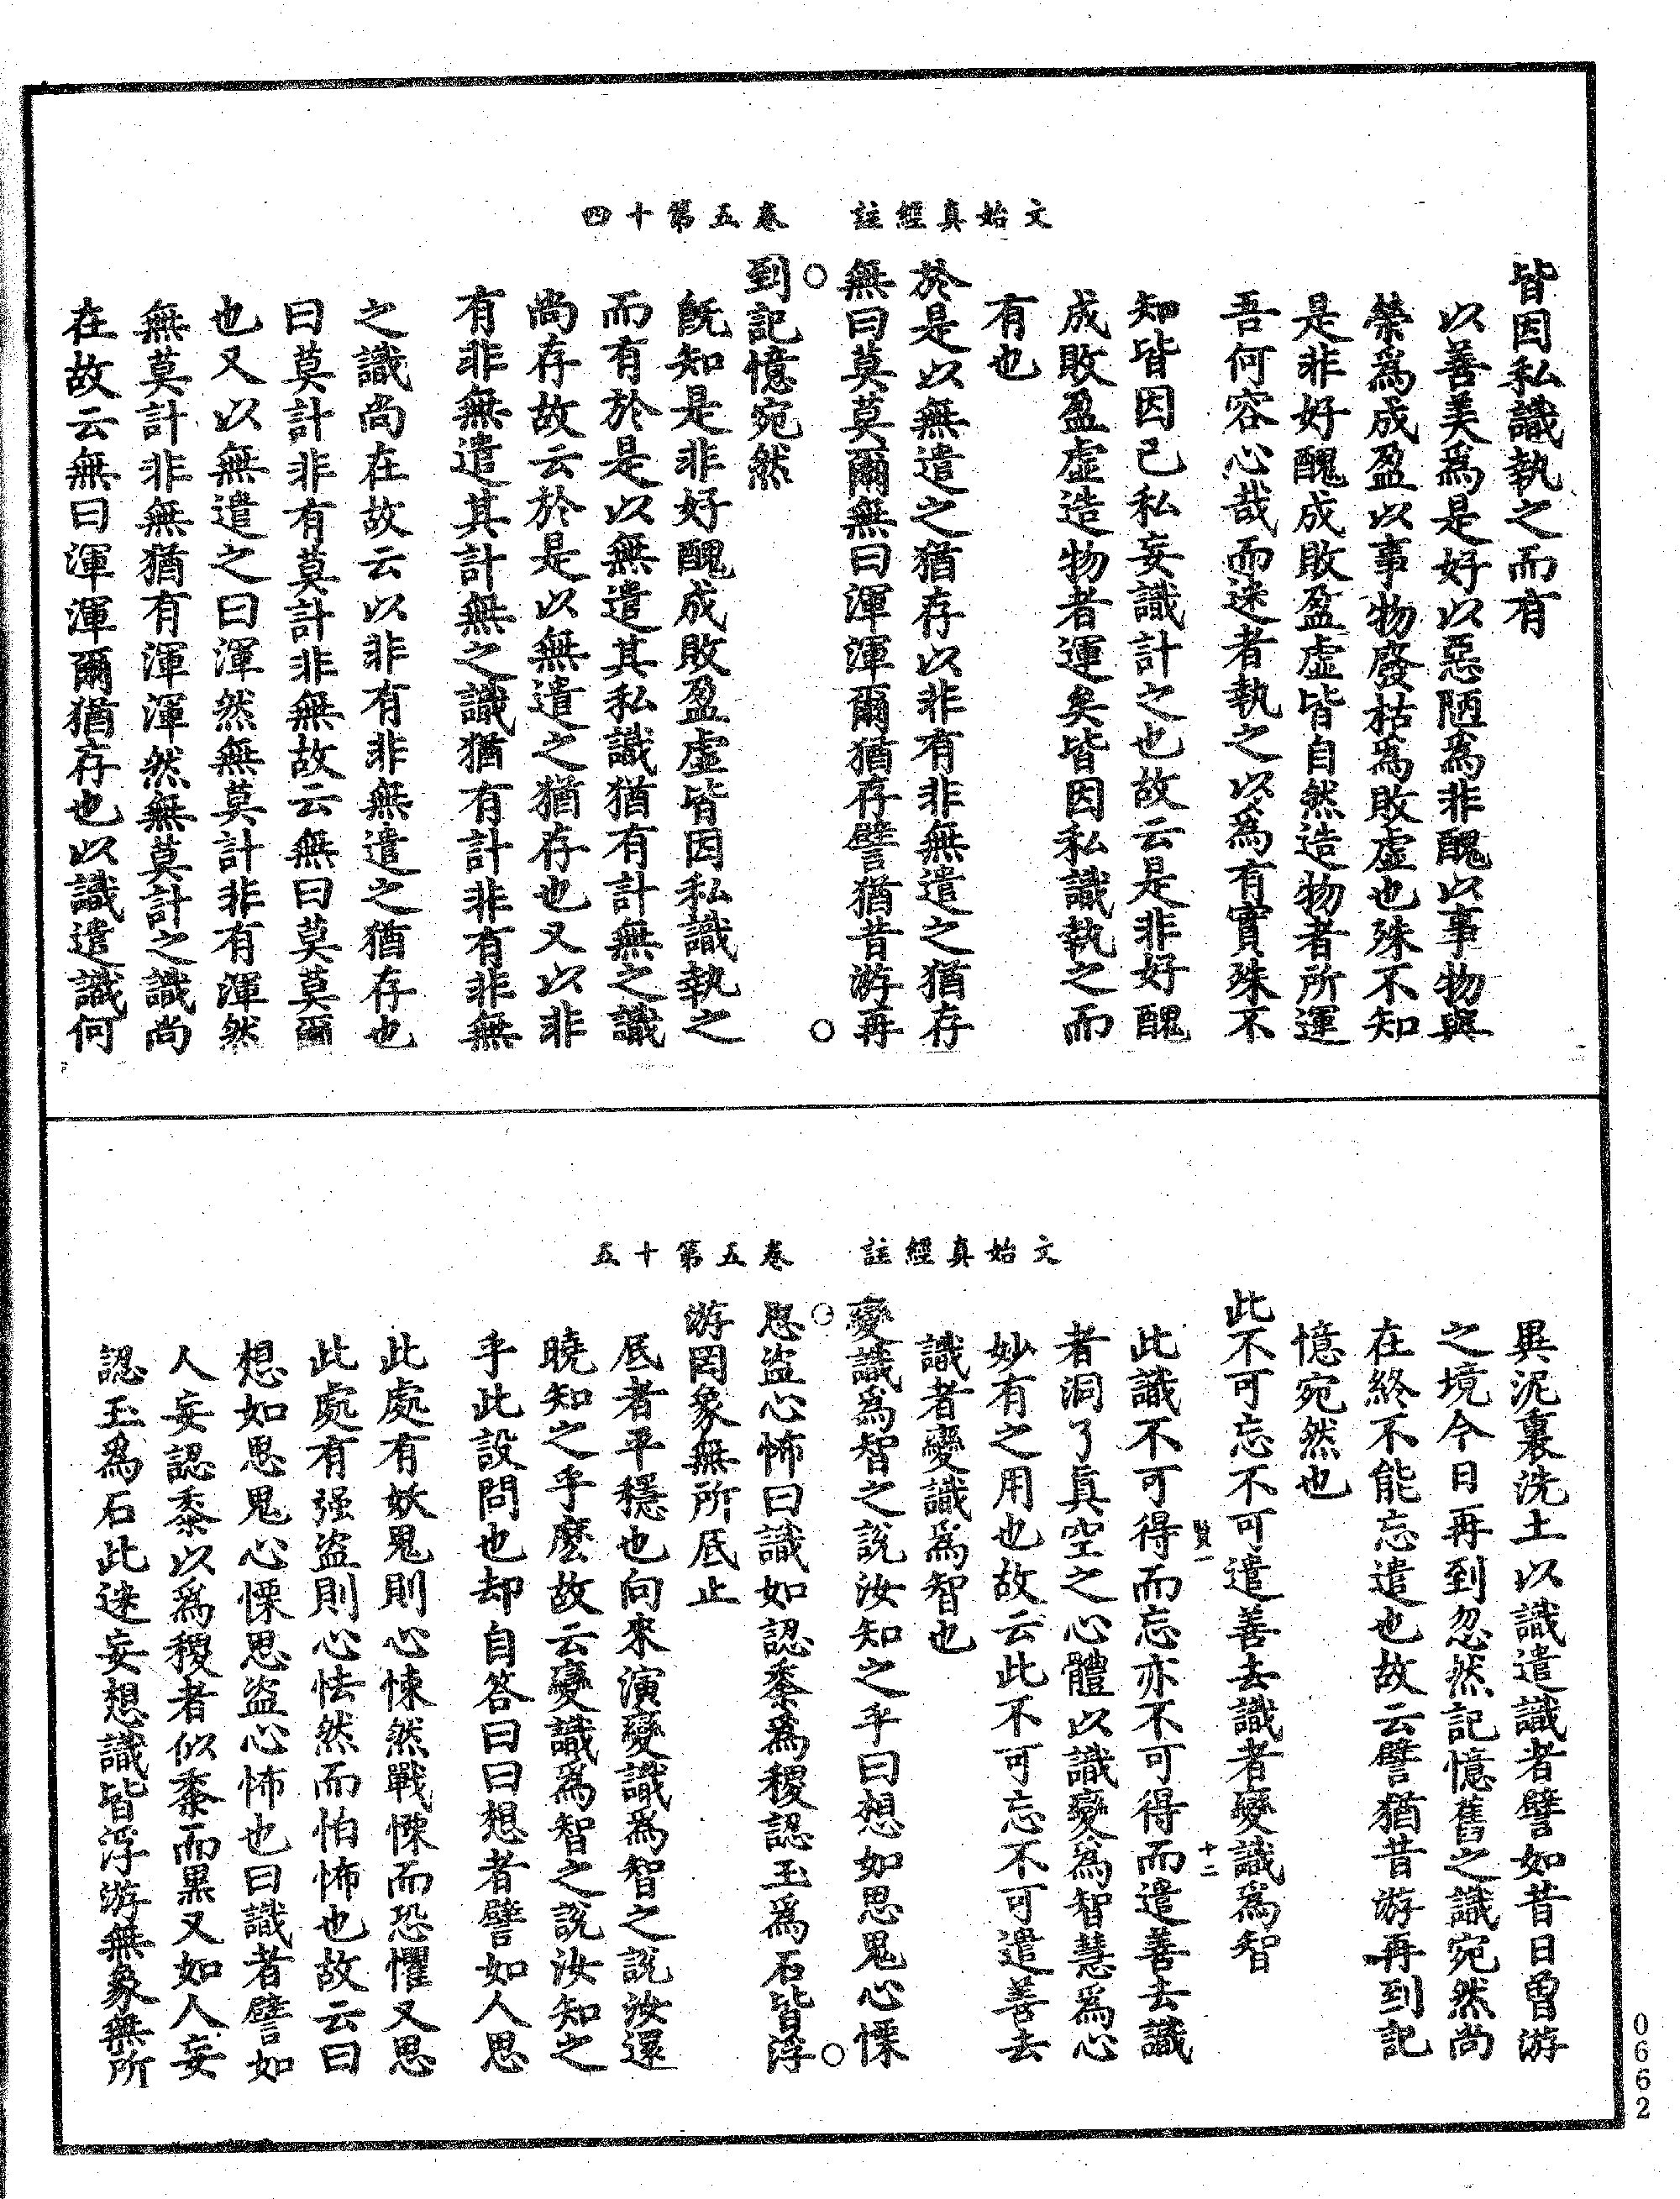 文始真經註　卷五第十四
皆因私識執之而有
以善美爲是好以惡陋爲非醜以事物與
榮爲成盈以事物廢枯爲敗虛也殊不知
是非好醜成敗盈虛皆自然造物者所運
吾何容心哉而迷者執之以爲有實殊不
知皆因已私妄識計之也故云是非好醜
成敗盈虛造物者運矣皆因私識執之而
有也
於是以無遣之猶存以非有非無遣之猶存
無曰莫莫爾無曰渾渾爾猶存譬猶昔游再
到記憶宛然
旣知是非好醜成敗盈虛皆因私識執之
而有於是以無遣其私識猶有計無之識
尚存故云於是以無遣之猶存也又以非
有非無遣其計無之識猶有計非有非無
之識尚在故云以非有非無遣之猶存也
曰莫計非有莫計非無故云無曰莫莫爾
也又以無遣之曰渾然無莫計非有渾然
無莫計非無猶有渾渾然無莫計之識尚
在故云無曰渾渾爾猶存也以識遣識何
文始真經註　卷五第十五
異泥裏洗土以識遣識者譬如昔日曾游
之境今日再到忽然記憶舊之識宛然尚
在終不能忘遣也故云譬猶昔游再到記
憶宛然也
此不可忘不可遣善去識者變識爲智
賢一
十二
此識不可得而忘亦不可得而遣善去識
者洞了真空之心體以識變爲智慧爲心
妙有之用也故云此不可忘不可遣善去
識者變識爲智也
變識爲智之說汝知之乎曰想如思鬼心慄
思盜心怖曰識如認黍爲稷認玉爲石皆浮
游罔象無所底止
底者平穩也向來演變識爲智之說汝還
曉知之乎麽故云變識爲智之說汝知之
乎此設問也却自答曰曰想者譬如人思
此處有妖鬼則心悚然戰慄而恐懼又思
此處有强盜則心怯然而怕怖也故云曰
想如思鬼心慄思盜心怖也曰識者譬如
人妄認黍以爲稷者似黍而黑又如人妄
認玉爲石此迷妄想識皆浮游無象無所
0662